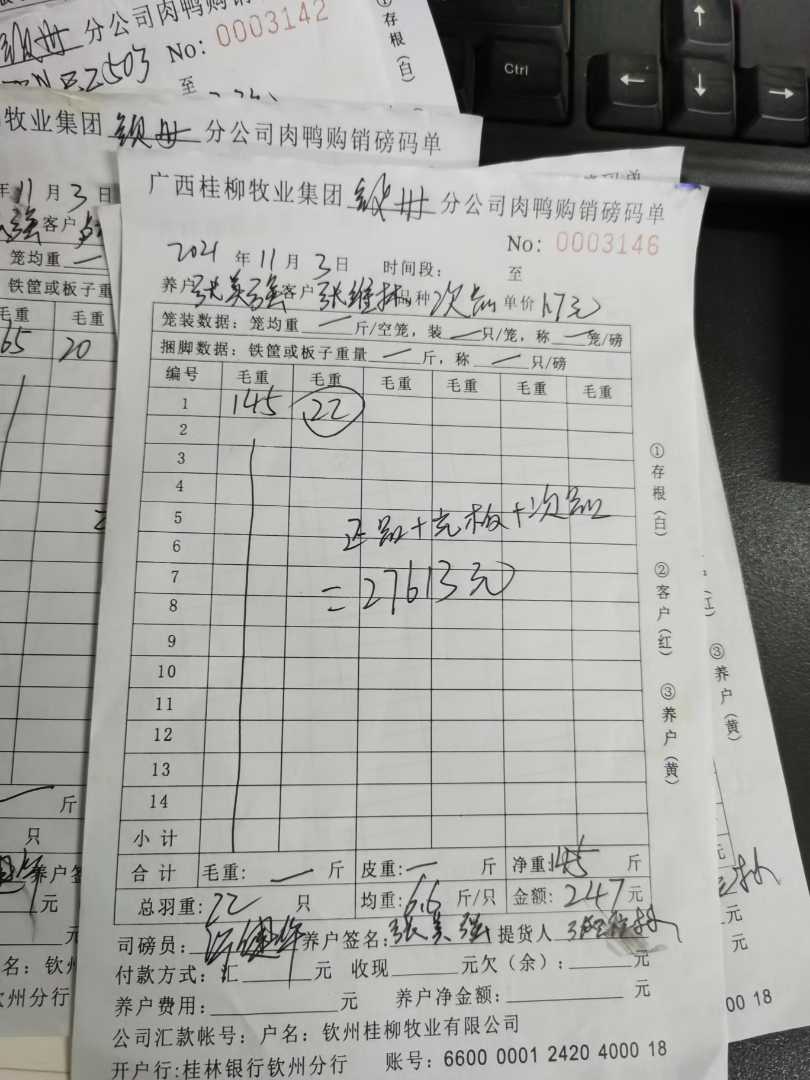 分公司肉鸭购销磅码单
No: 0003142
至
①存根(白)
Ctrl
牧业集团 钦州 分公司肉鸭购销磅码单
年11月3日
客户
笼均重 一
铁筐或板子重
毛重 毛重
65 20
广西桂柳牧业集团 钦州 分公司肉鸭购销磅码单
No: 0003146
2021年11月3日 时间段: 至
养户 张美强 客户 张维林 品种 次品 单价 1.7元
笼装数据: 笼均重 一 斤/空笼, 装 一 只/笼, 称 一 笼/磅
捆脚数据: 铁筐或板子重量 一 斤, 称 一 只/磅
编号 毛重 毛重 毛重 毛重 毛重 毛重
1 145 22
2
3
4
5
6
7
8
9
10
11
12
13
14
正品+克板+次品
=27613元
小计
合计 毛重: 一 斤 皮重: 一 斤 净重: 145 斤
总羽重: 22 只 均重: 6.6 斤/只 金额: 247 元
司磅员: 养户签名: 张美强 提货人 张维林
付款方式: 汇 元 收现 元欠(余): 元
养户费用: 元 养户净金额: 元
公司汇款帐号: 户名: 钦州桂柳牧业有限公司
开户行: 桂林银行钦州分行 账号: 6600 0001 2420 4000 18
①存根(白) ②客户(红) ③养户(黄)
斤
只
养户签
元
元
名: 钦州
州分行
(红) ③养户(黄)
元
元
元
00 18